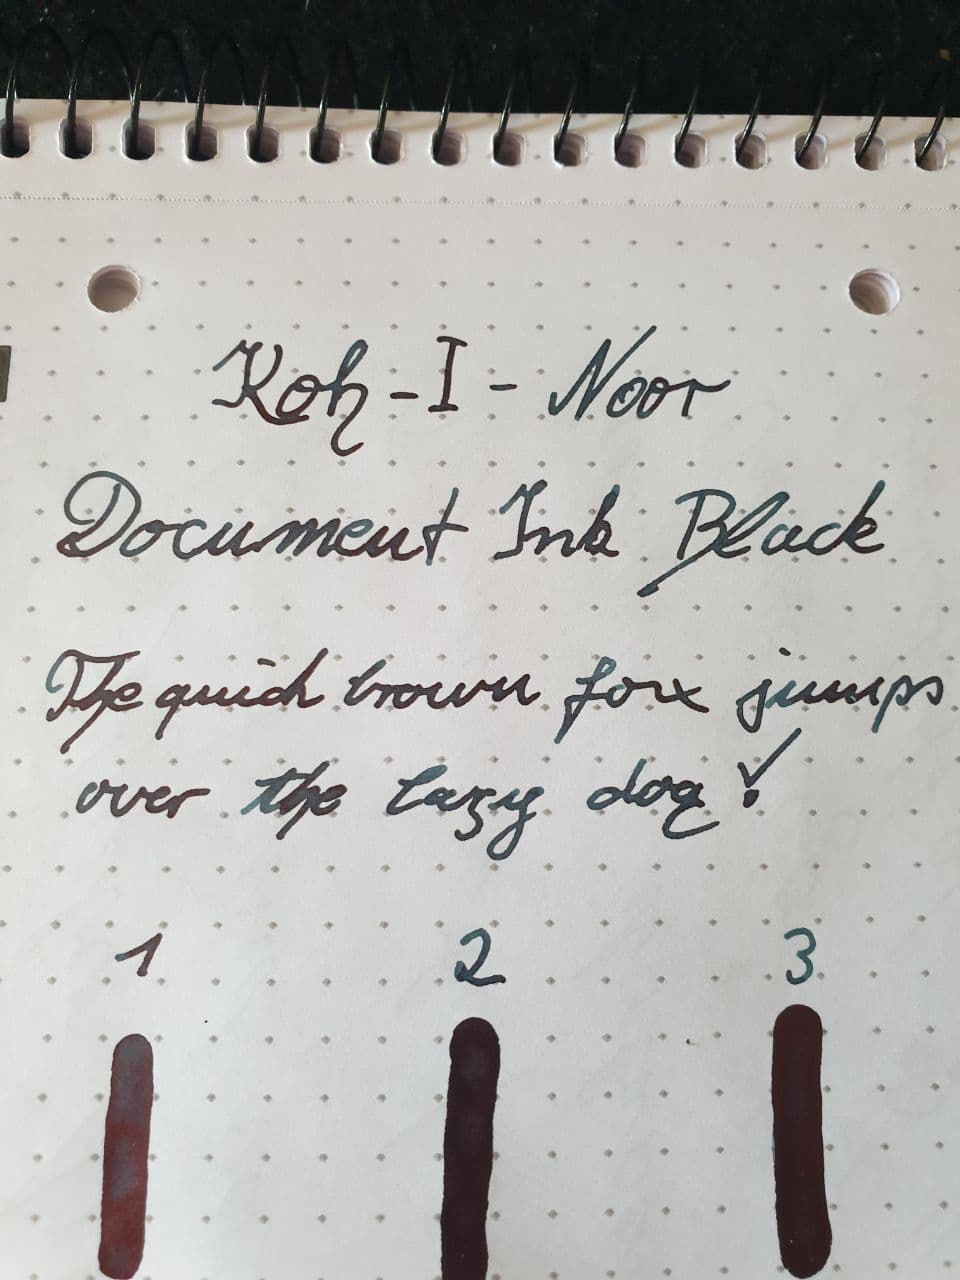 Koh-I-Noor
Document Ink Black
The quick brown fox jumps
over the lazy dog!
1 2 3